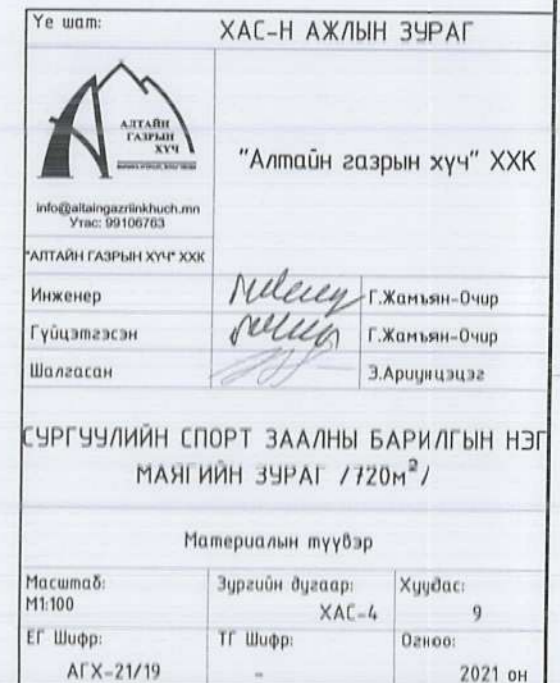 Үе шат:
ХАС-Н АЖЛЫН ЗУРАГ
АЛТАЙН
ГАЗРЫН
ХҮЧ
"Алтайн газрын хүч" ХХК
info@altaingazriinkhuch.mn
Утас: 99106763
"АЛТАЙН ГАЗРЫН ХҮЧ" ХХК
Инженер
Г.Жамъян-Очир
Гүйцэтгэсэн
Г.Жамъян-Очир
Шалгасан
Э.Ариунцэцэг
СУРГУУЛИЙН СПОРТ ЗААЛНЫ БАРИЛГЫН НЭГ
МАЯГИЙН ЗУРАГ /720м²/
Материалын түүвэр
Масштаб:
М1:100
Зургийн дугаар:
ХАС-4
Хуудас:
9
ЕГ Шифр:
АГХ-21/19
ТГ Шифр:
-
Огноо:
2021 он